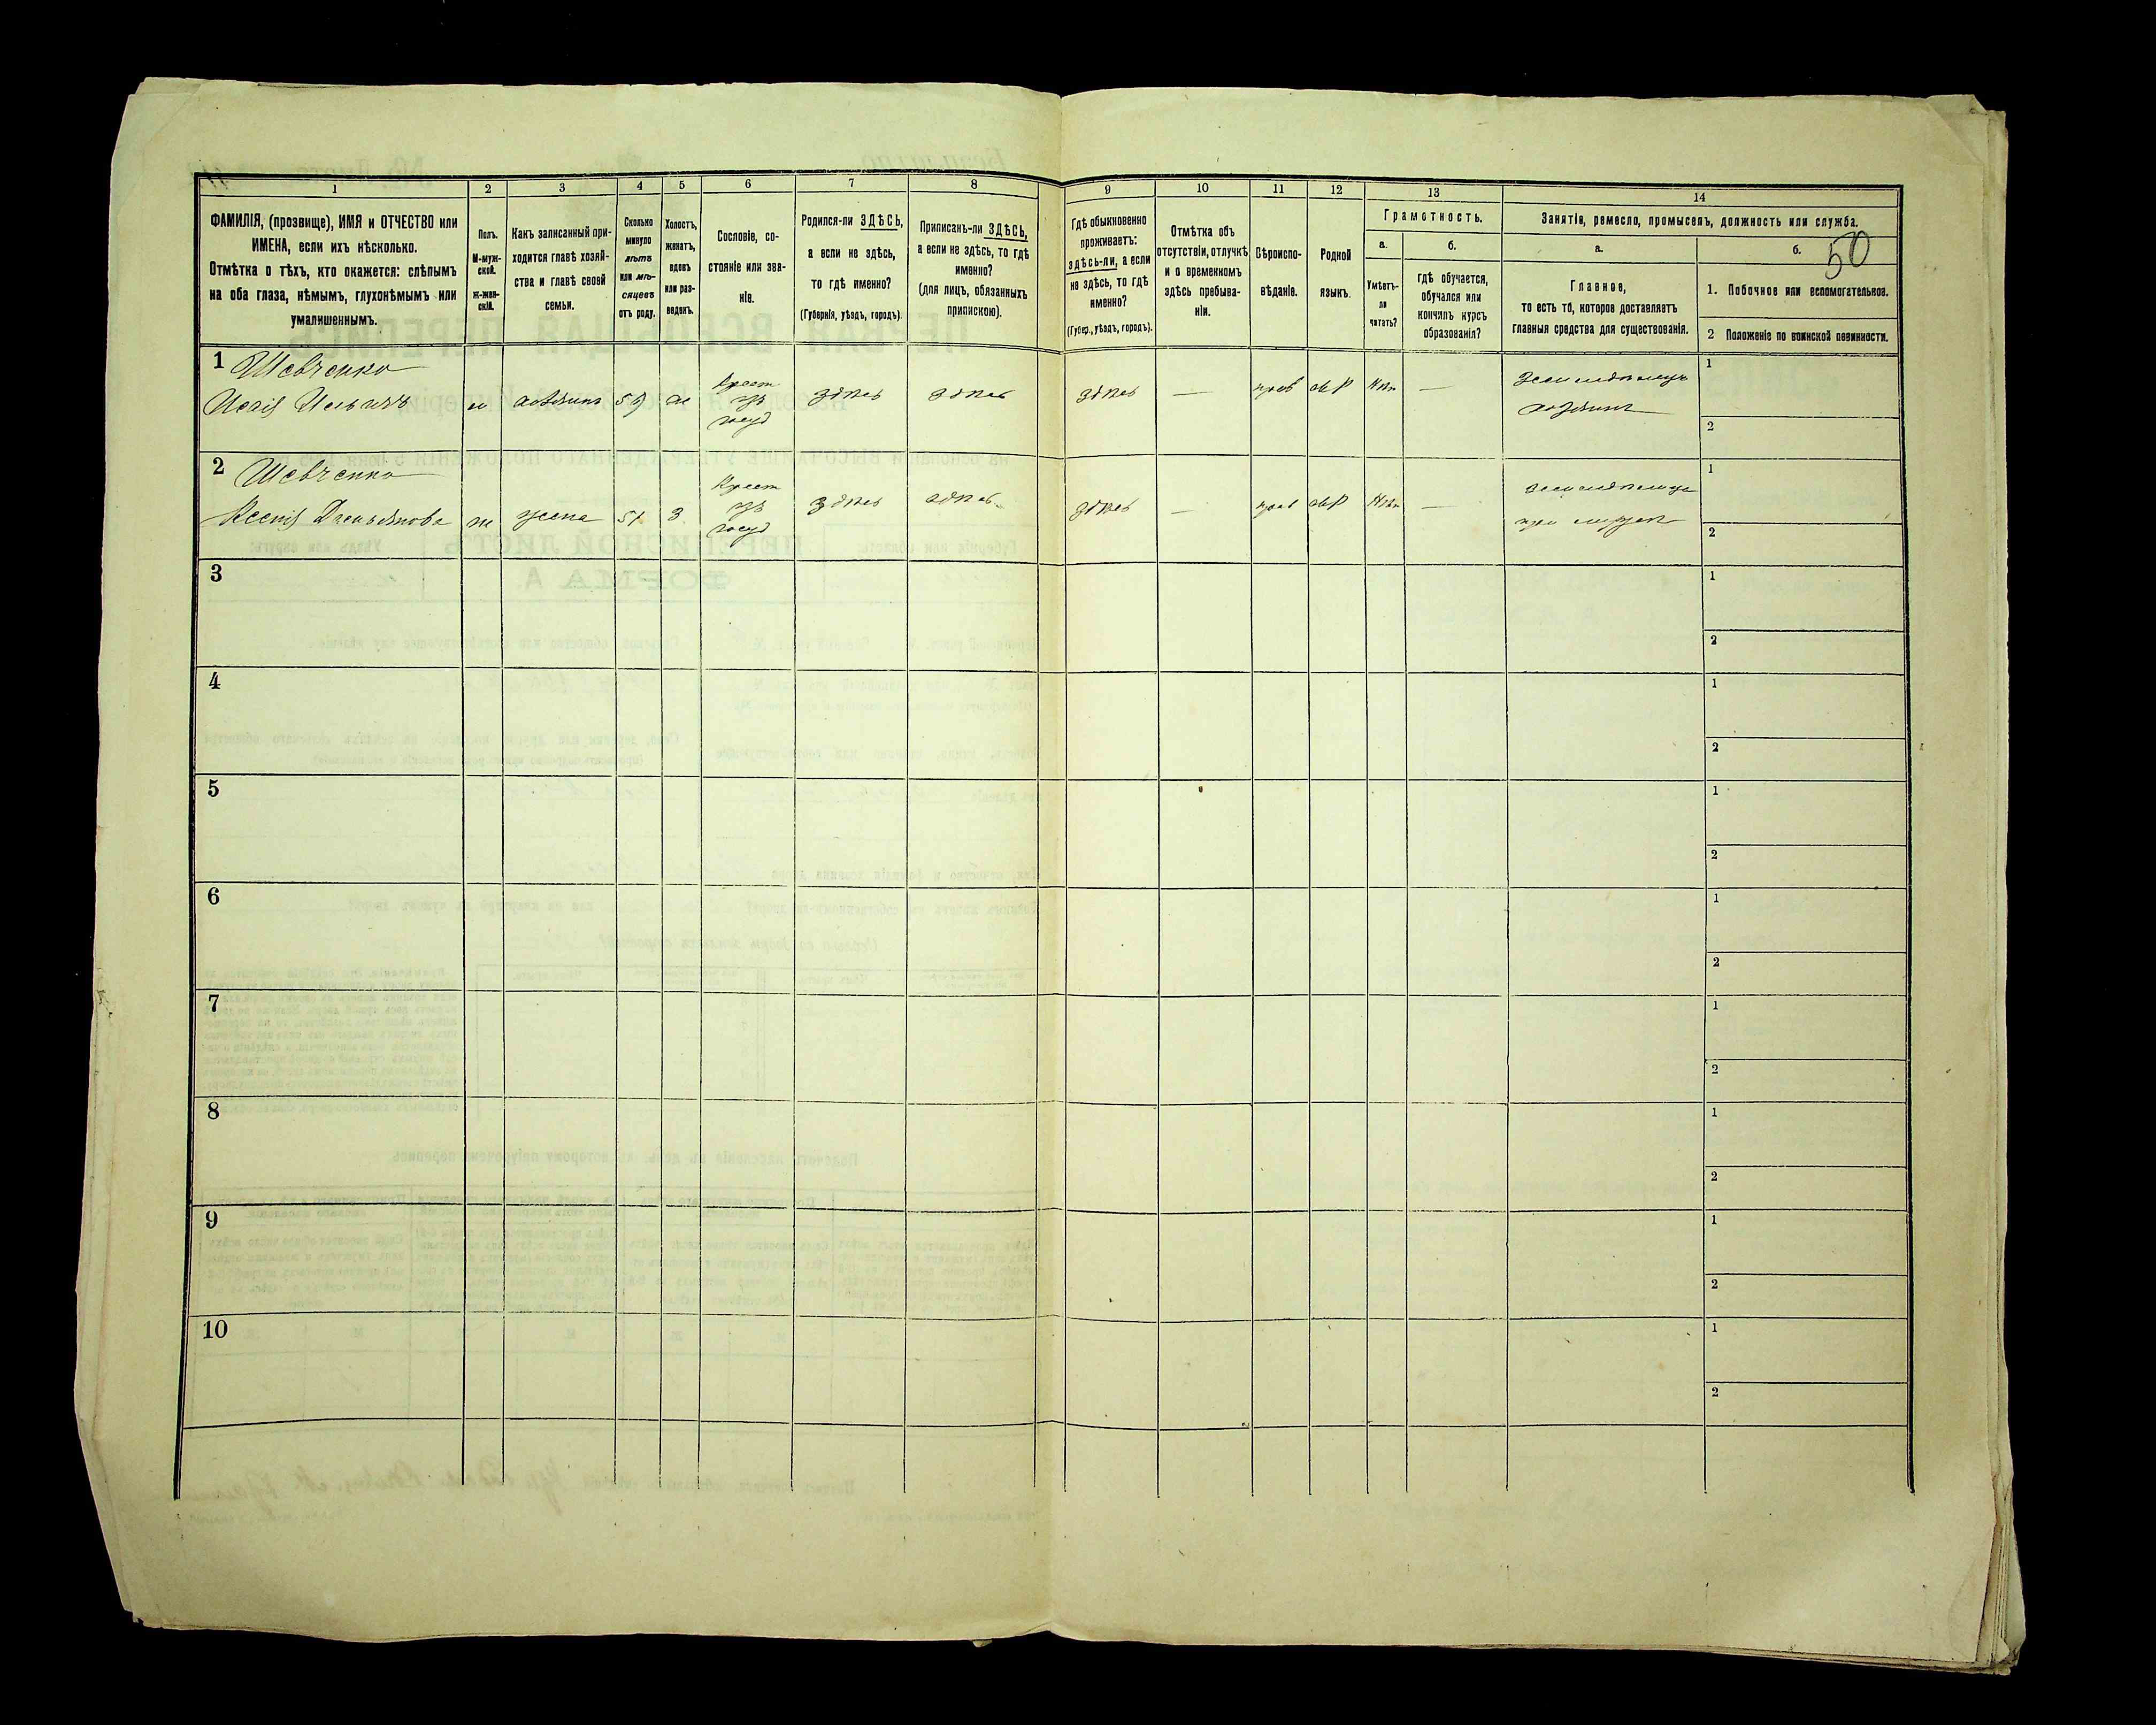 1 2 3 4 5 6 7 8 9 10 11 12 13 14
ФАМИЛІЯ, (прозвище), ИМЯ и ОТЧЕСТВО или
ИМЕНА, если ихъ нѣсколько.
Отмѣтка о тѣхъ, кто окажется: слѣпымъ
на оба глаза, нѣмымъ, глухонѣмымъ или
умалишеннымъ.
Полъ.
М-муж-
ской.
Ж-жен-
скій.
Какъ записанный при-
ходится главѣ хозяй-
ства и главѣ своей
семьи.
Сколько
минуло
лѣтъ
или мѣ-
сяцевъ
отъ роду.
Холостъ,
женатъ,
вдовъ
или раз-
веденъ.
Сословіе, со-
стояніе или зва-
ніе.
Родился-ли ЗДѢСЬ,
а если не здѣсь,
то гдѣ именно?
(Губернія, уѣздъ, городъ).
Приписанъ-ли ЗДѢСЬ,
а если не здѣсь, то гдѣ
именно?
(для лицъ, обязанныхъ
припискою).
Гдѣ обыкновенно
проживаетъ:
здѣсь-ли, а если
не здѣсь, то гдѣ
именно?
(Губер., уѣздъ, городъ).
Отмѣтка объ
отсутствіи, отлучкѣ
и о временномъ
здѣсь пребыва-
ніи.
Вѣроиспо-
вѣданіе.
Родной
языкъ.
Грамотность.
а.
Умѣетъ-
ли
читать?
б.
гдѣ обучается,
обучался или
кончилъ курсъ
образованія?
Занятіе, ремесло, промыселъ, должность или служба.
а.
Главное,
то есть то, которое доставляетъ
главныя средства для существованія.
б.
50
1. Побочное или вспомогательное.
2 Положеніе по воинской повинности.
1 Шевченко
м хозяинъ 59 ж
Крест
изъ
госуд
здѣсь здѣсь здѣсь — прав мр нѣт —
земледѣлецъ
хозяинъ
1
2
2 Шевченко
Ксенія Демьянова ж жена 51 З
Крест
изъ
госуд
здѣсь здѣсь здѣсь — прав мр нѣт —
при мужѣ
1
2
3
1
2
4
1
2
5
1
2
6
1
2
7
1
2
8
1
2
9
1
2
10
1
2